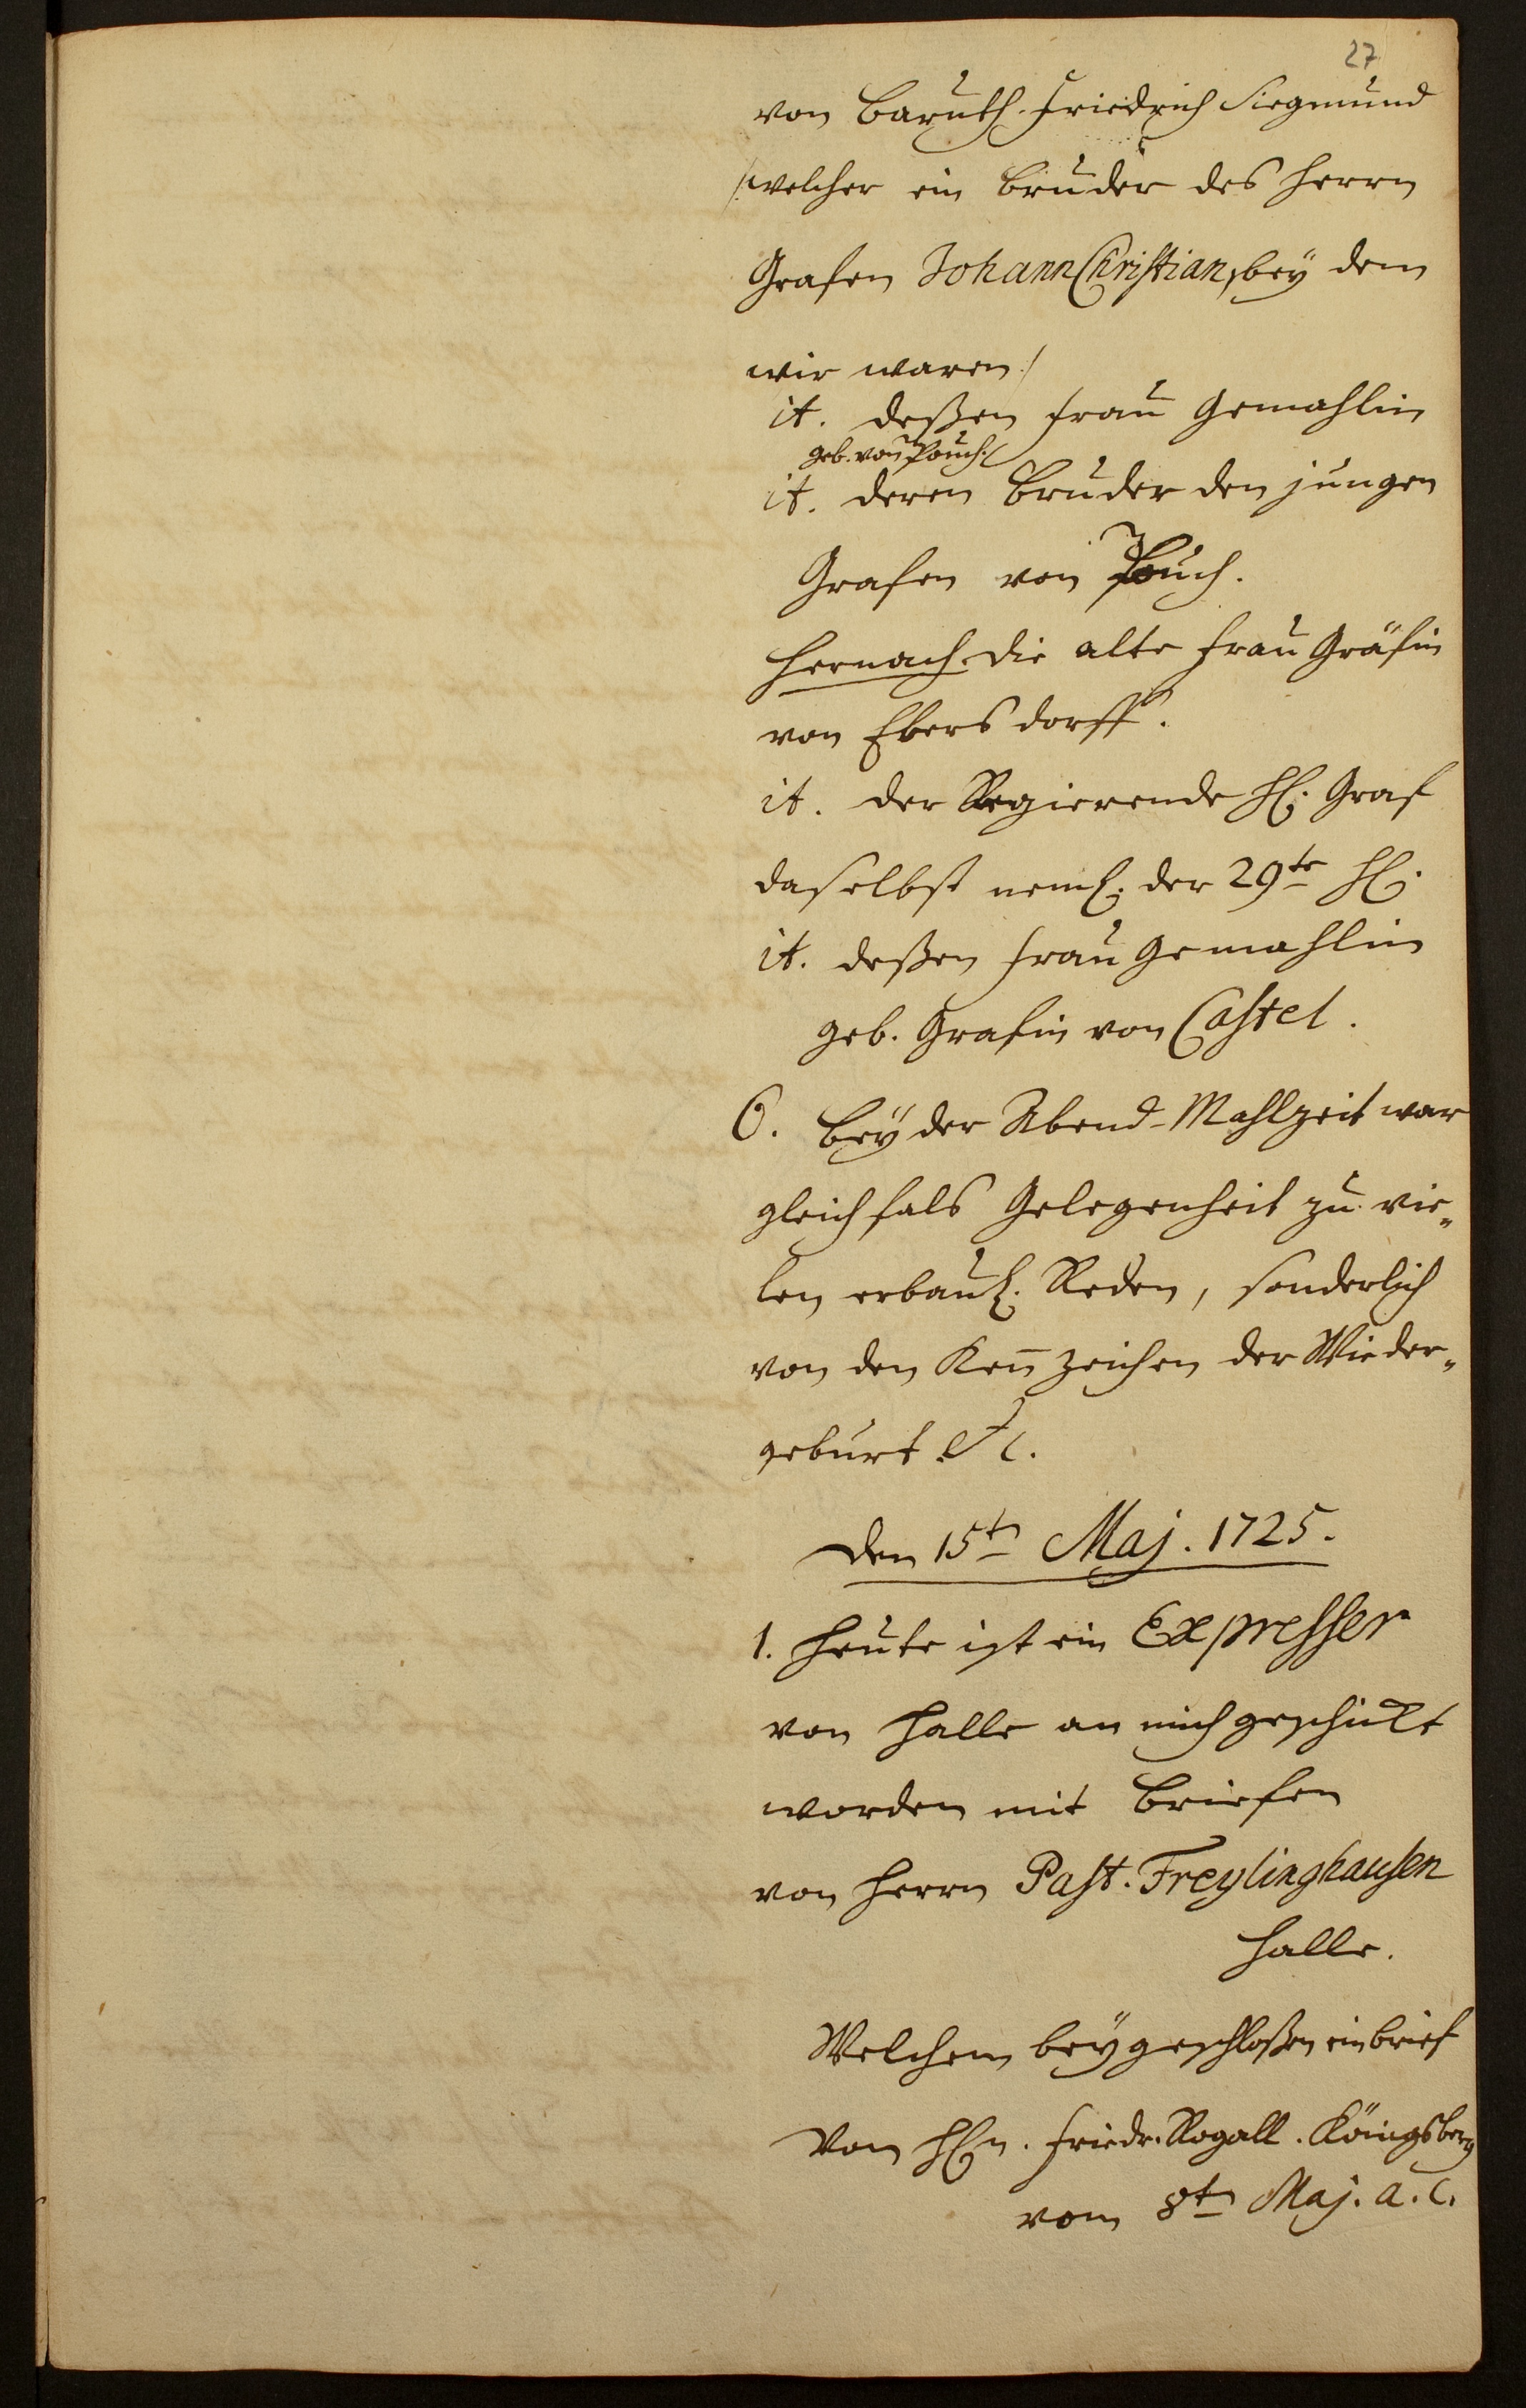 27
von Baruth Friedrich Siegmund
/:welcher ein Bruder des Herrn
Grafen Johann Christian, bey dem
wir waren:/
it. deßen Frau Gemahlin
geb. von Pouch.
it. deren Bruder den jungen
Grafen von Pouch.
Hernach die alte Frau Gräfin
von Ebersdorff.
it. der Regierende H. Graf
daselbst neml. der 29te H.
it. deßen Frau Gemahlin
geb. Grafin von Castel.
6. Bey der Abend-Mahlzeit war
gleichfals Gelegenheit zu vie„
len erbaul. Reden, sonderlich
von den Kennzeichen der Wieder„
geburt etc.
Den 15t Maj. 1725.
1. Heute ist ein Expresser
von Halle an mich geschickt
worden mit Briefen
von Herrn Past. Freylinghausen
Halle.
Welchem beygeschloßen ein brief
Von Hn. Friedr. Rogall. Königsberg
vom 8t Maj. a. c.